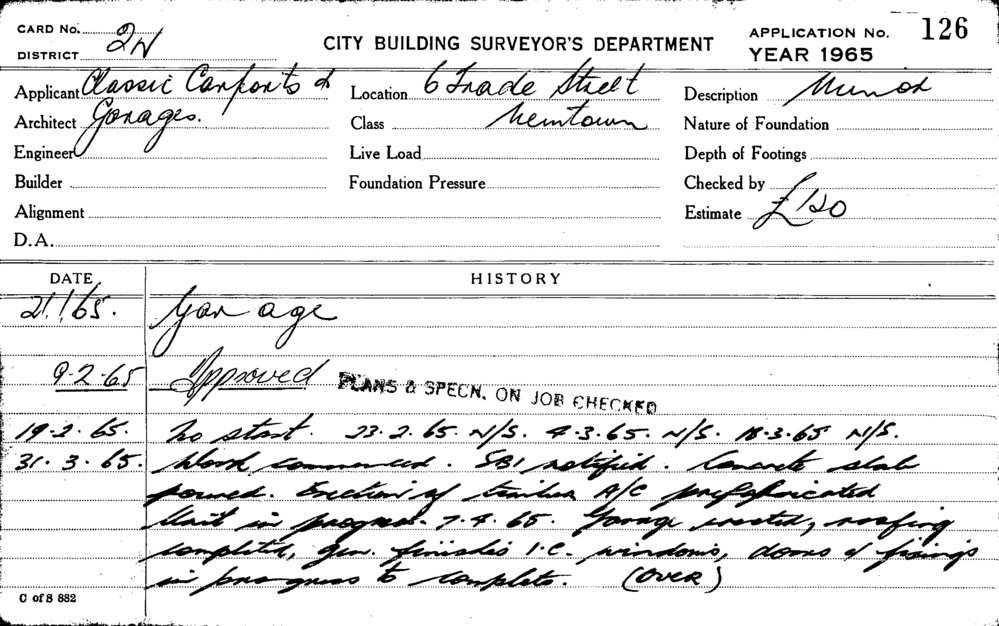 CARD No. 2N
DISTRICT
CITY BUILDING SURVEYOR'S DEPARTMENT
APPLICATION No. 126
YEAR 1965
Applicant Classic Carports &
Architect Garages.
Engineer
Builder
Alignment
D.A.
Location 6 Trade Street
Class Newtown
Live Load
Foundation Pressure
Description Minor
Nature of Foundation
Depth of Footings
Checked by
Estimate £120
DATE HISTORY
21/1/65. Garage
9-2-65 Approved PLANS & SPECN. ON JOB CHECKED
19.2.65. No start. 23.2.65 N/S. 4.3.65. N/S. 18.3.65 N/S.
31.3.65. Work commenced. SBI notified. Concrete slab
poured. Erection of timber A/C prefabricated
Unit in progress. 7.4.65. Garage erected, roofing
complete, gen. finishes I.C. windows, doors & fixings
in progress to complete. (OVER)
C of S 882